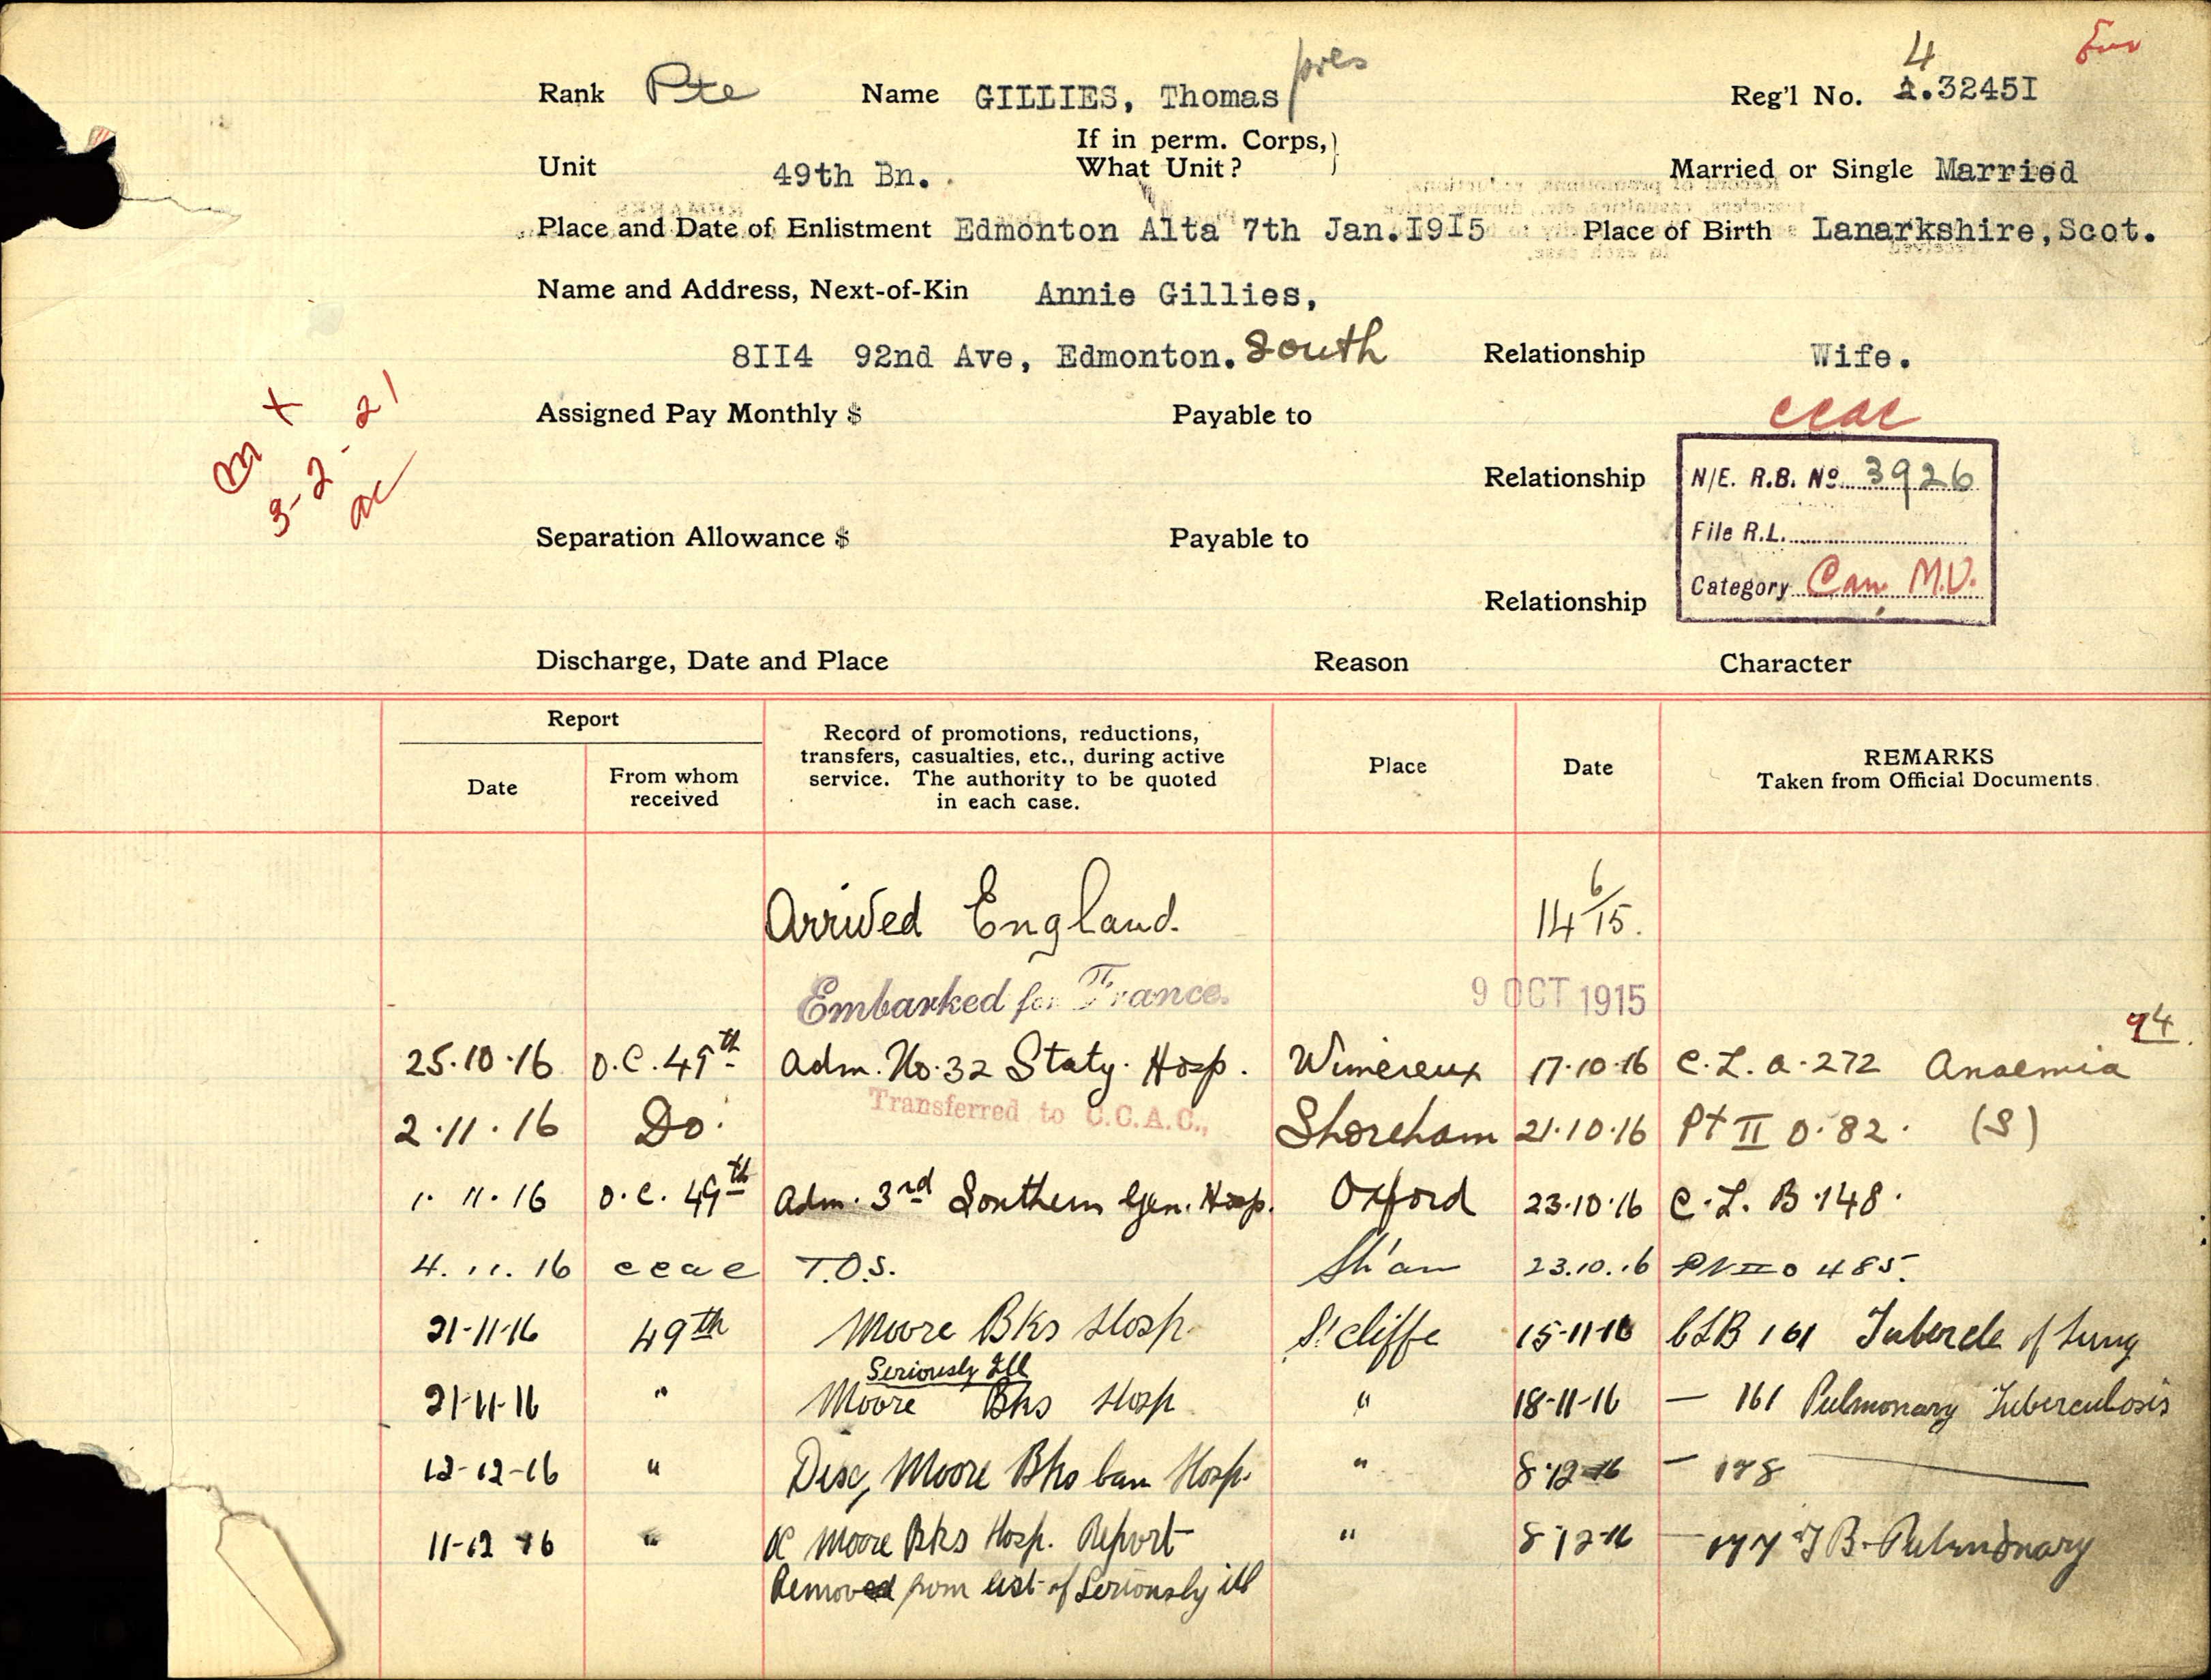 Rank Pte Name GILLIES, Thomas Reg'l No. 4.3245I
If in perm. Corps,
Unit 49th Bn. What Unit? Married or Single Married
Place and Date of Enlistment Edmonton Alta 7th Jan.I9I5 Place of Birth Lanarkshire,Scot.
Name and Address, Next-of-Kin Annie Gillies,
8II4 92nd Ave, Edmonton. South Relationship Wife.
Assigned Pay Monthly $ Payable to
ccac
Relationship
N/E. R.B. No. 3926
File R.L.
Category Can. M.U.
3-2-21
Separation Allowance $ Payable to
Relationship
Discharge, Date and Place Reason Character
Report
Date
From whom received
Record of promotions, reductions,
transfers, casualties, etc., during active
service. The authority to be quoted
in each case.
Place
Date
REMARKS
Taken from Official Documents.
Arrived England. 14 6/15.
Embarked for France. 9 OCT 1915
94
25.10.16 O.C. 49th Adm. No. 32 Staty. Hosp. Wimereux 17.10.16 C.L. a.272 Anaemia
2.11.16 Do. Transferred to C.C.A.C., Shoreham 21.10.16 Pt II O.82. (S)
1.11.16 O.C. 49th Adm. 3rd Southern Gen. Hosp. Oxford 23.10.16 C.L. B.148.
4.11.16 ccac T.O.S. Sh'am 23.10.16 Pt II O 485.
21-11-16 49th Moore Bks Hosp. S'cliffe 15-11-16 CLB 161 Tubercle of Lung
Seriously Ill
21-11-16 " Moore Bks Hosp " 18-11-16 — 161 Pulmonary Tuberculosis
12-12-16 " Disc, Moore Bks Can Hosp. " 8-12-16 — 178
11-12-16 " OC Moore Bks Hosp. Report " 8-12-16 — 177 TB. Pulmonary
Removed from list of Seriously ill